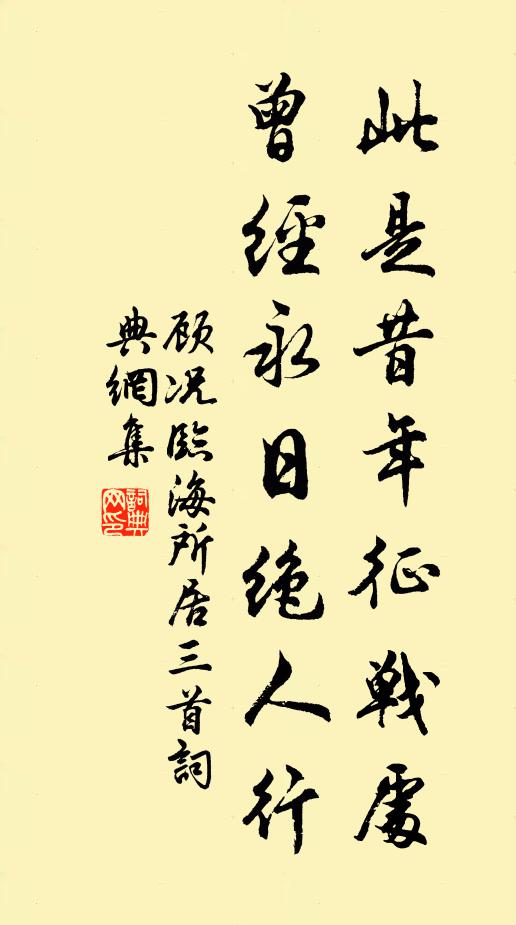 此是昔年征戰處
曾經永日絕人行
顧况臨海所居三首詞
典網集
詞典
网印